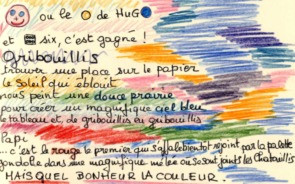 ou le de HuGO
et six, c'est gagné !
Gribouillis
trouver une place sur le papier
le soleil qui éblouit
nous peint une douce prairie
pour créer un magnifique ciel bleu
le tableau et, de gribouillis en gribouillis
Papi
...c'est le rouge le premier qui s'affale bientôt rejoint par la palette
gondole dans une magnifique mêlée où se sont joints les Chabouillis
MAIS QUEL BONHEUR LA COULEUR.